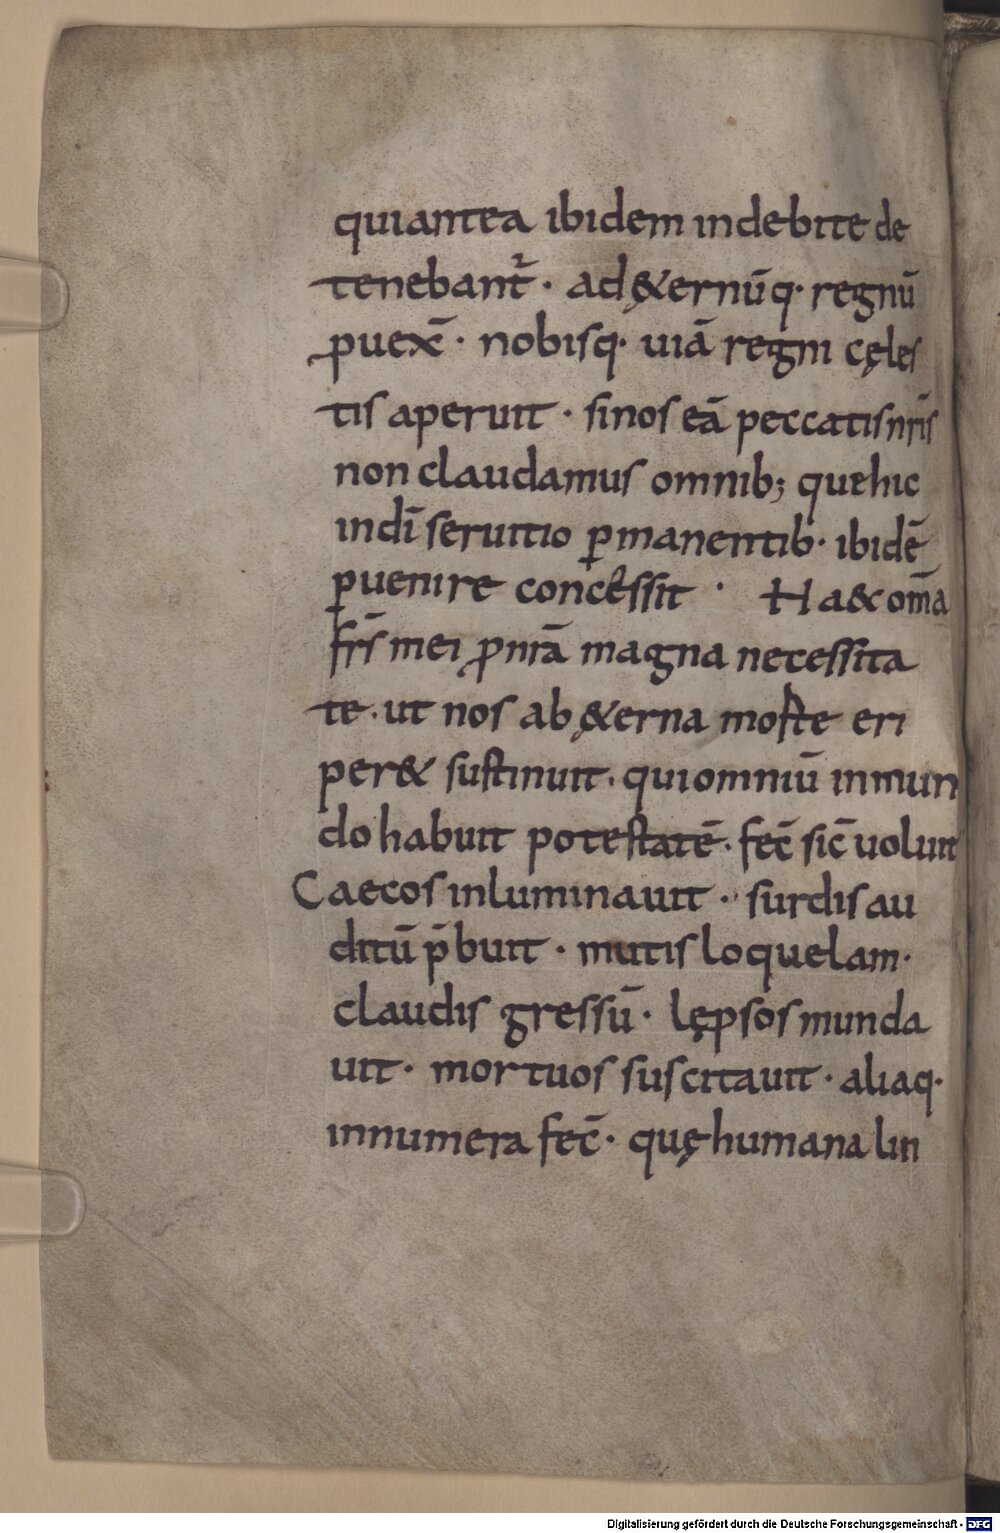 quiantea ibidem indebite de
tenebant᷑ · ad &ernūq· regnū
ꝓuex̄ · nobisq· uiā regni cęles
tis aperuit · sinos eā peccatisnr̄is
non claudamus omnib; quehic
indī seruitio ꝑmanentib· ibidē
ꝑuenire concessit · Ha&com̄a
fr̄s mei ꝓnrā magna necessita
te· ut nos ab ę&erna morte eri
per& sustinuit· quiomniū inmun
do habuit potestatē · fec̄ sic̄ uoluit
Caecos inluminauit · surdisau
ditū p̄buit · mutis loquelam·
claudis gressū · lępsos munda
uit · mortuos suscitauit · aliaq·
innumera fec̄ · quę humana lin
Digitalisierung gefördert durch die Deutsche Forschungsgemeinschaft - DFG